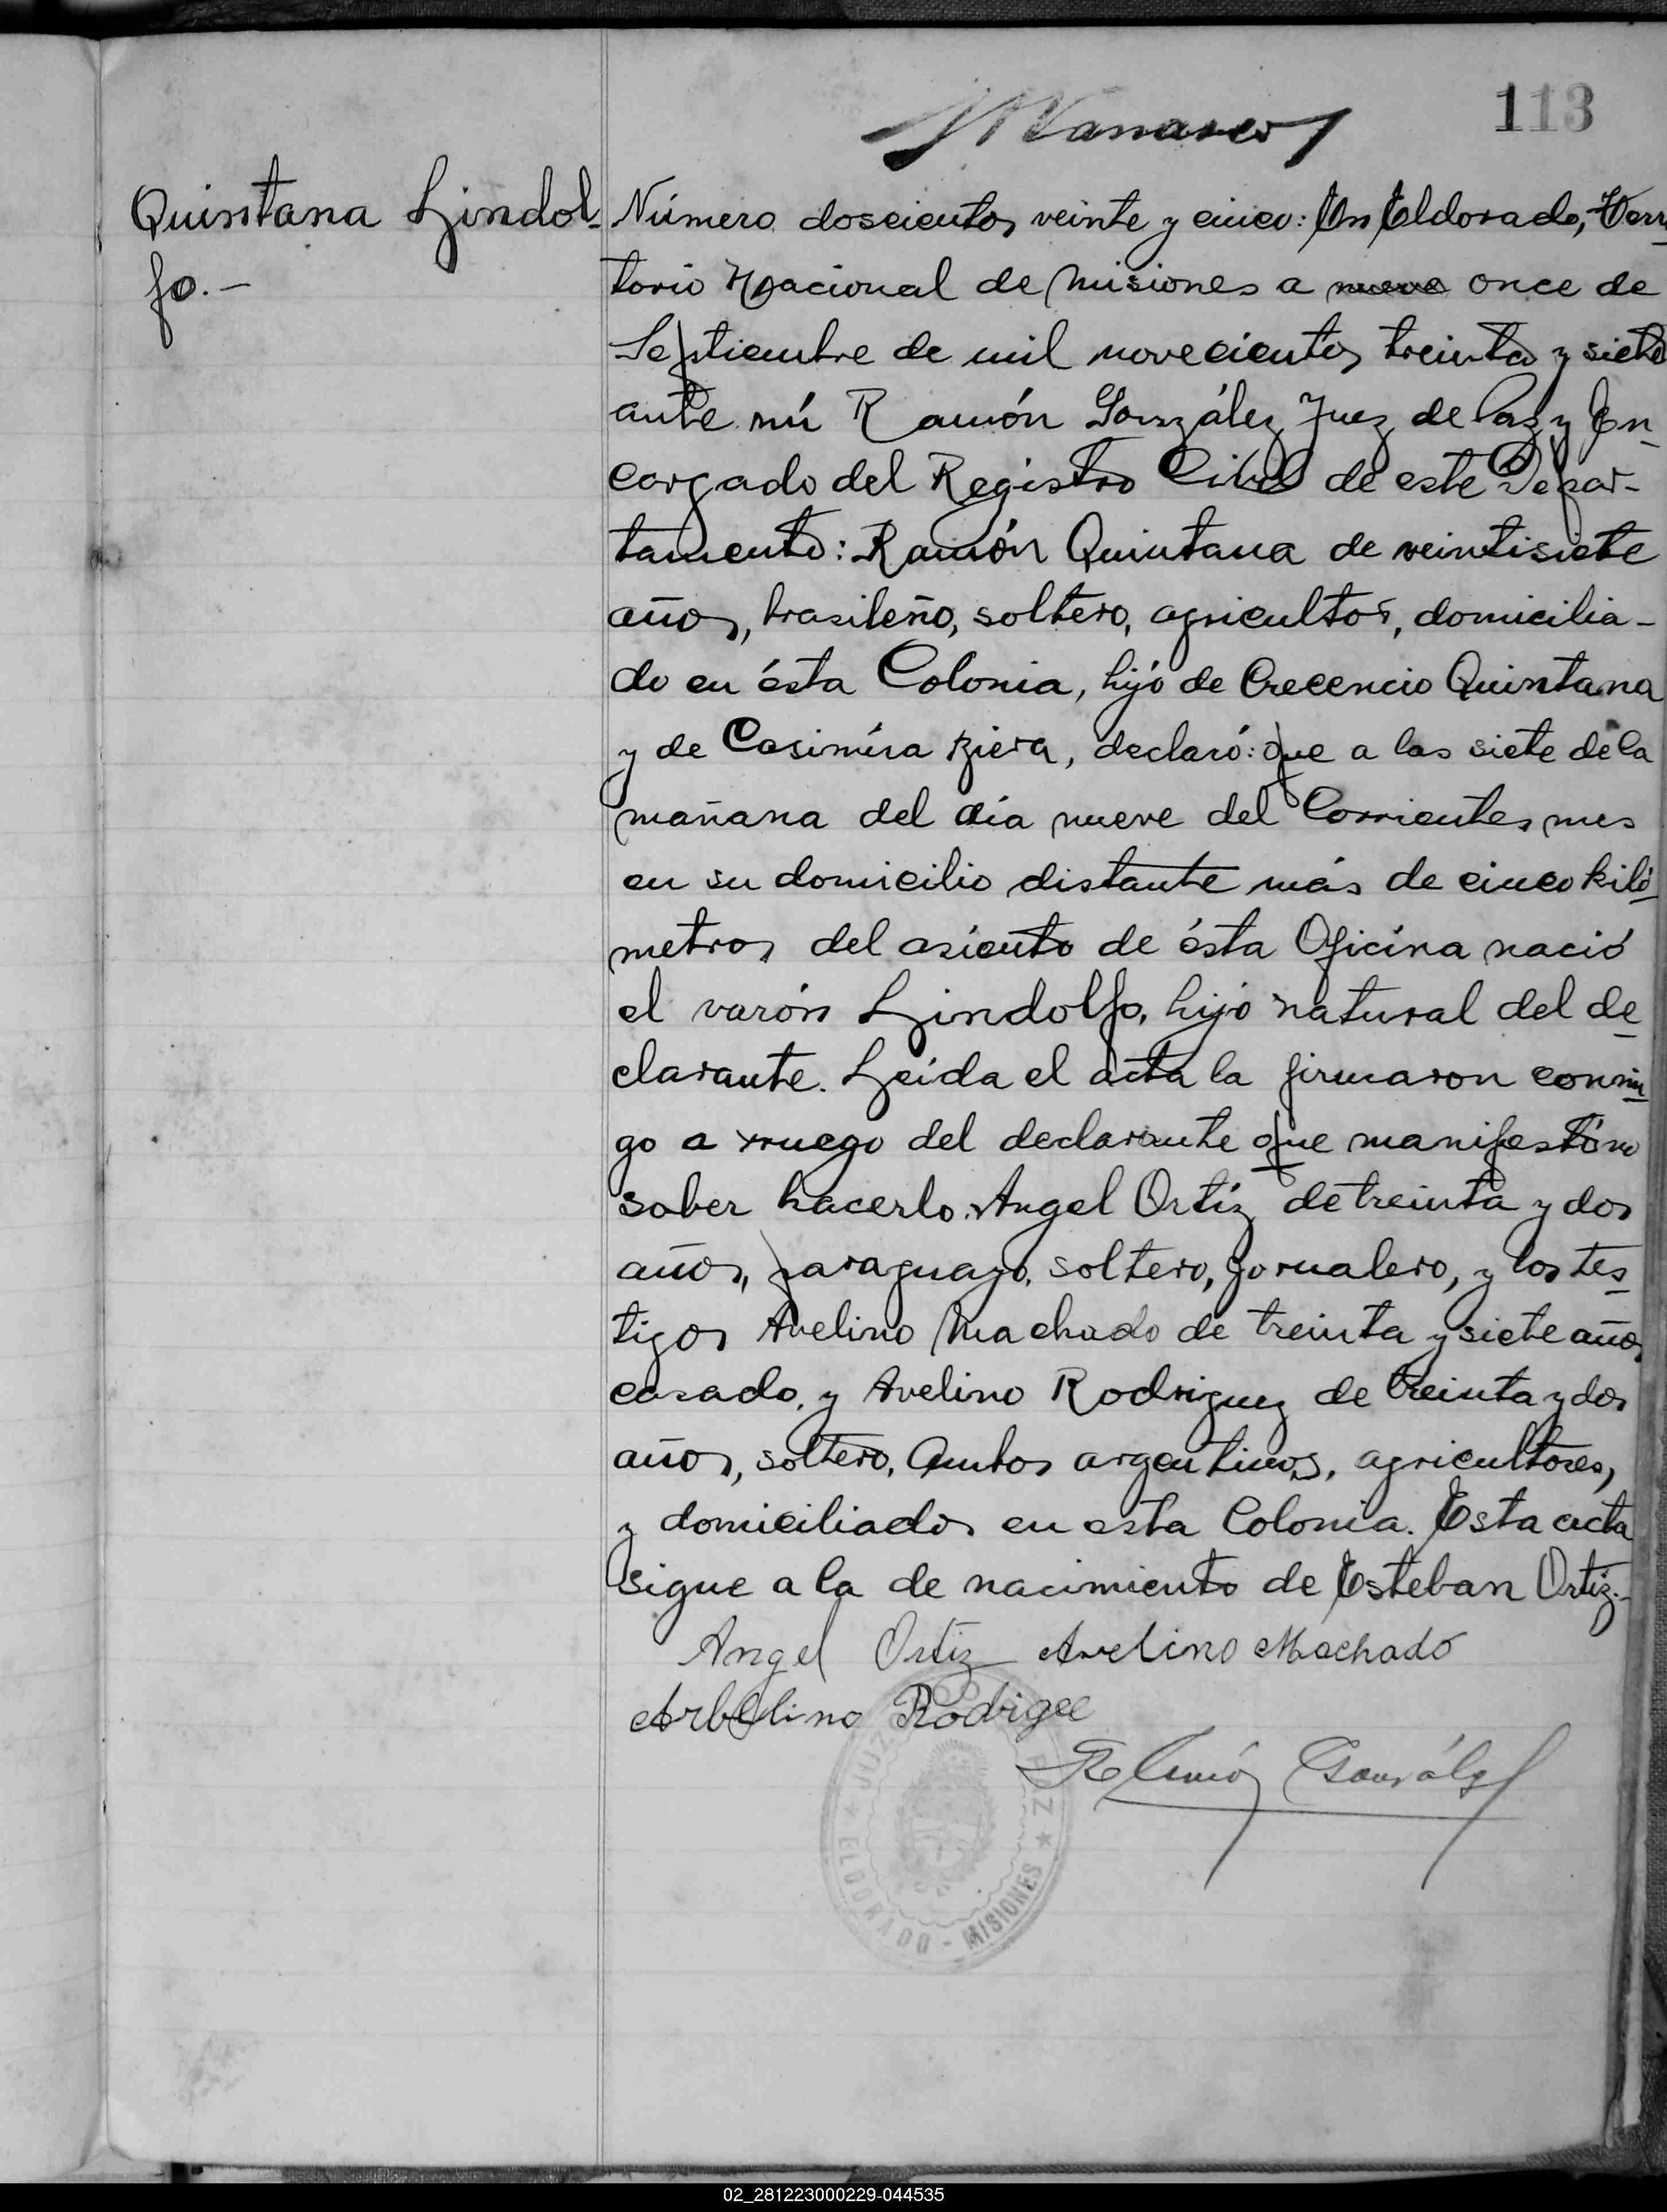 113
Quintana Lindol-
fo.-
Número doscientos veinte y cinco: En Eldorado, Terri
torio Nacional de Misiones a nueve once de
Septiembre de mil novecientos treinta y siete
ante mí Ramón González Juez de Paz y En
cargado del Registro Civil de este Depar-
tamento: Ramón Quintana de veintisiete
años, brasileño, soltero, agricultor, domicilia-
do en ésta Colonia, hijo de Crecencio Quintana
y de Casimíra, declaró: que a las siete de la
mañana del día nueve del Corrientes mes
en su domicilio distante más de cinco kiló
metros del asiento de ésta Oficina nació
el varón Lindolfo, hijo natural del de
clarante. Leída el acta la firmaron conmi
go a rruego del declarante que manifestó no
saber hacerlo. Angel Ortíz de treinta y dos
años, paraguayo, soltero, jornalero, y los tes
tigos Avelino Machado de treinta y siete años
casado, y Avelino Rodriguez de treinta y dos
años, soltero, ambos argentinos, agricultores,
y domiciliados en esta Colonia. Esta acta
sigue a la de nacimiento de Esteban Ortiz.-
Angel Ortiz Avelino Machado
Arbelino Rodigee
Ramón González
JUZ PAZ
ELDORADO - MISIONES
02_281223000229-044535